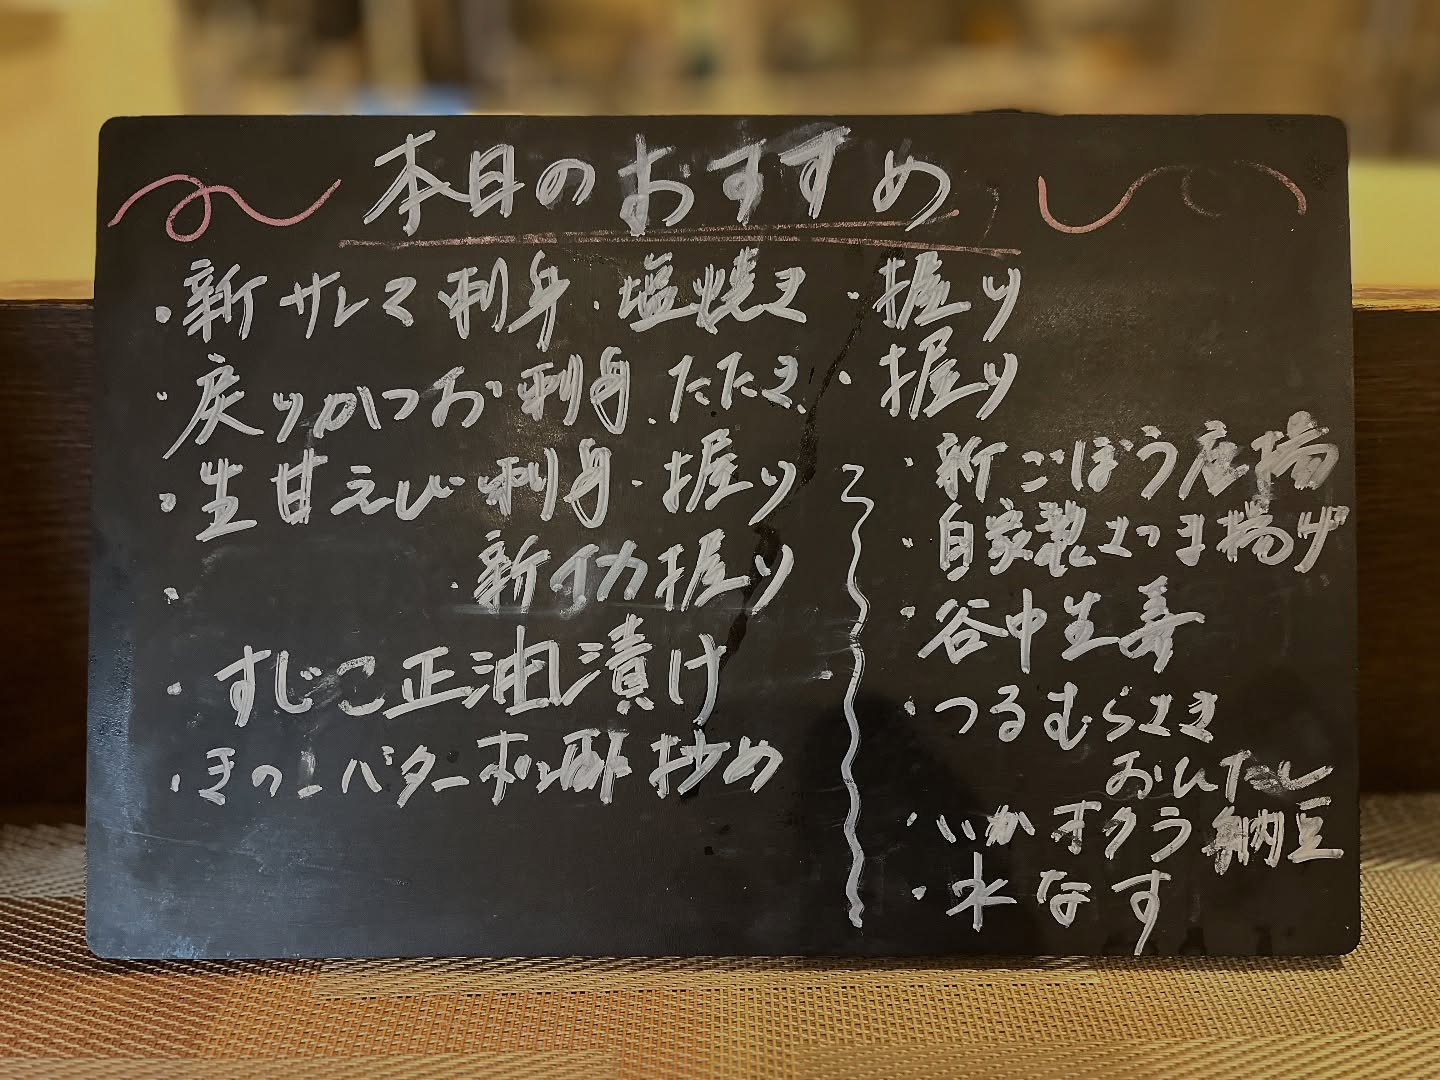 本日のおすすめ
・新サンマ刺身・塩焼き・握り
・戻りかつお刺身・たたき・握り
・生甘えび刺身・握り
・新イカ握り
・すじこ正油漬け
・きのこバターポン酢炒め
・新ごぼう唐揚
・自家製さつま揚げ
・谷中生姜
・つるむらさき
おひたし
・いかオクラ納豆
・水なす